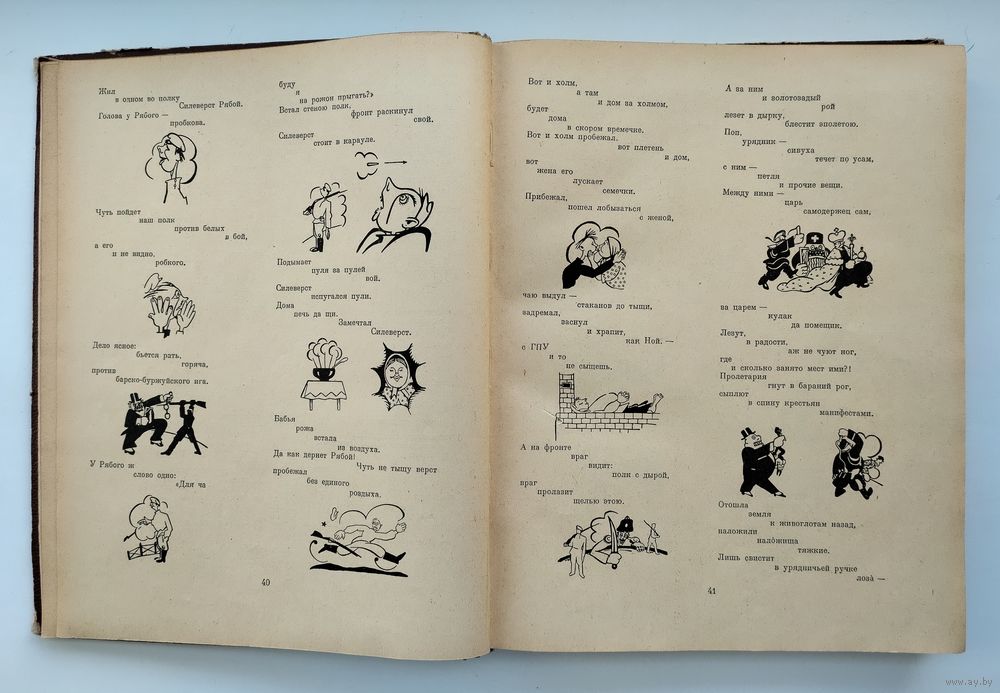 Жил
в одном во полку
Силеверст Рябой.
Голова у Рябого —
пробкова.
Чуть пойдет
наш полк
против белых
в бой,
а его
и не видно,
робкого.
Дело ясное:
бьется рать,
горяча,
против
барско-буржуйского ига.
У Рябого ж
слово одно:
«Для ча
буду
я
на рожон прыгать?»
Встал стеною полк,
фронт раскинул
свой.
Силеверст
стоит в карауле.
Подымает
пуля за пулей
вой.
Силеверст
испугался пули.
Дома
печь да щи.
Замечтал
Силеверст.
Бабья
рожа
встала
из воздуха.
Да как дернет Рябой!
Чуть не тыщу верст
пробежал
без единого
роздыха.
40
Вот и холм,
а там
и дом за холмом,
будет
дома
в скором времечке.
Вот и холм пробежал.
вот плетень
и дом,
вот
жена его
лускает
семечки.
Прибежал,
пошел лобызаться
с женой,
чаю выдул —
стаканов до тыщи,
задремал,
заснул
и храпит,
как Ной. —
с ГПУ
и то
не сыщешь.
А на фронте
враг
видит:
полк с дырой,
враг
пролазит
щелью этою.
А за ним
и золотозадый
рой
лезет в дырку,
блестит эполетою.
Поп,
урядник —
сивуха
течет по усам,
с ним —
петля
и прочие вещи.
Между ними —
царь
самодержец сам,
за царем —
кулак
да помещик.
Лезут,
в радости,
аж не чуют ног,
где
и сколько занято мест ими?!
Пролетария
гнут в бараний рог,
сыплют
в спину крестьян
манифестами.
Отошла
земля
к живоглотам назад,
наложили
нало̀жища
тяжкие.
Лишь свистит
в урядничьей ручке
лоза̀ —
41
www.ay.by